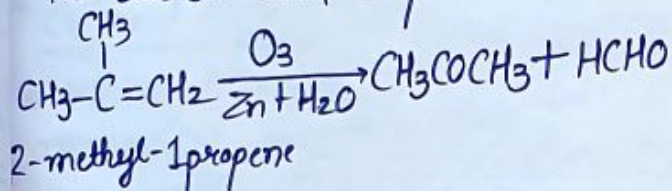 CH3
CH3-C=CH2 O3 Zn+H2O → CH3COCH3+HCHO
2-methyl-1propene